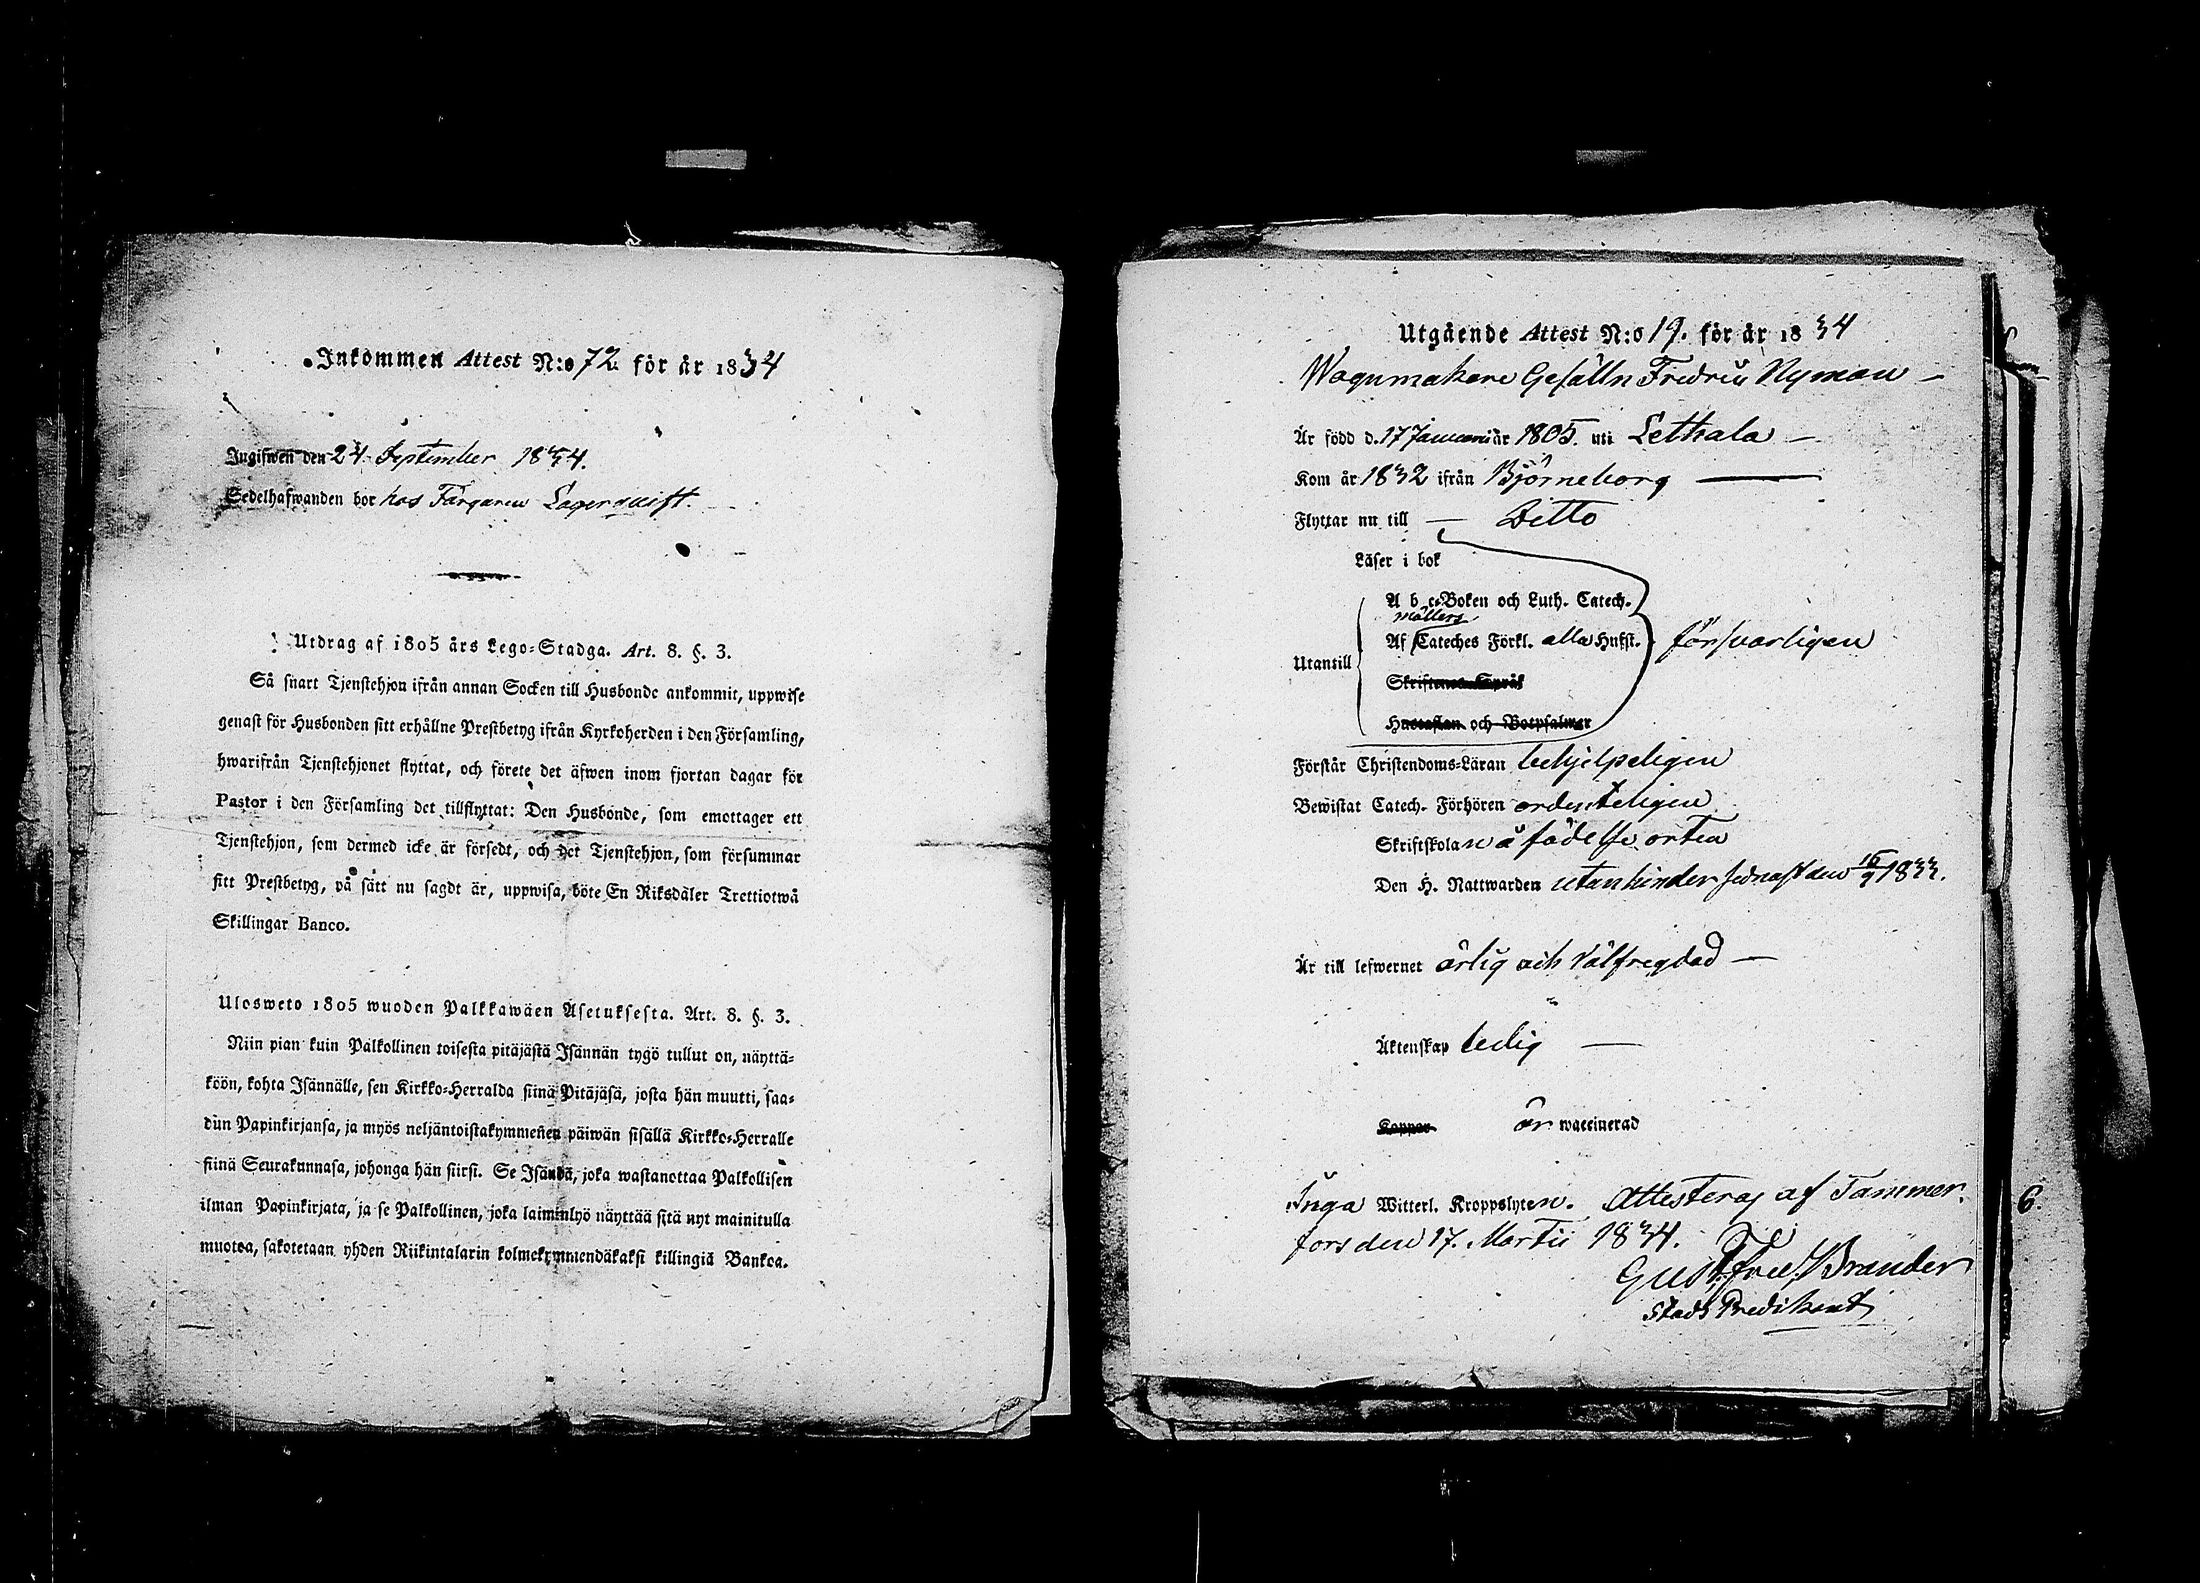 Inkommen Attest N:o 72. för år 1834
Ingifwen den 24 September 1834.
Sedelhafwanden bor hos Färgaren Lagerquist.
Utdrag af 1805 års Lego-Stadga. Art. 8. §. 3.
Så snart Tjenstehjon ifrån annan Socken till Husbonde ankommit, uppwise
genast för Husbonden sitt erhållne Prestbetyg ifrån Kyrkoherden i den Församling,
hwarifrån Tjenstehjonet flyttat, och förete det äfwen inom fjortan dagar för
Pastor i den Församling det tillflyttat: Den Husbonde, som emottager ett
Tjenstehjon, som dermed icke är försedt, och det Tjenstehjon, som försummar
sitt Prestbetyg, på sätt nu sagdt är, uppwisa, böte En Riksdaler Trettiotwå
Skillingar Banco.
Ulosweto 1805 wuoden Palkkawäen Asetuksesta. Art. 8. §. 3.
Niin pian kuin Palkollinen toisesta pitäjästä Isännän tygö tullut on, näyttä-
köön, kohta Isännälle, sen Kirkko-Herralda siinä Pitäjäsä, josta hän muutti, saa-
dun Papinkirjansa, ja myös neljäntoistakymmenen päiwän sisällä Kirkko-Herralle
siinä Seurakunnasa, johonga hän siirsi. Se Isändä, joka wastanottaa Palkollisen
ilman Papinkirjata, ja se Palkollinen, joka laiminlyö näyttää sitä nyt mainitulla
muotoa, sakotetaan yhden Riikintalarin kolmekymmendäkaksi killingiä Bankoa.
Utgående Attest N:o 19. för år 1834
Wagnmakare Gesälln Fredric Nyman -
Är född d. 17 Januari år 1805. uti Lethala -
Kom år 1832 ifrån Björneborg
Flyttar nu till - Ditto
Läser i bok
A b c-Boken och Luth. Catech.
Möllers
Af Cateches Förkl. alla Hufst. försvarligen
Utantill
Skriftenes Språk
Hustaflan och Botpsalmer
Förstår Christendoms-Läran behjelpeligen
Bewistat Catech. Förhören ordenteligen
Skriftskolan å födelse orten
Den H. Nattwarden utan hinder sednast den 16/9 1833.
Är till lefwernet ärlig och välfregdad -
Äktenskap ledig -
Koppor är waccinerad
Inga Witterl. Kroppslyten. Attesteras af Tammer-
fors den 17. Martii 1834.
Gust. Fred. Brander
Stads Predikant
6.